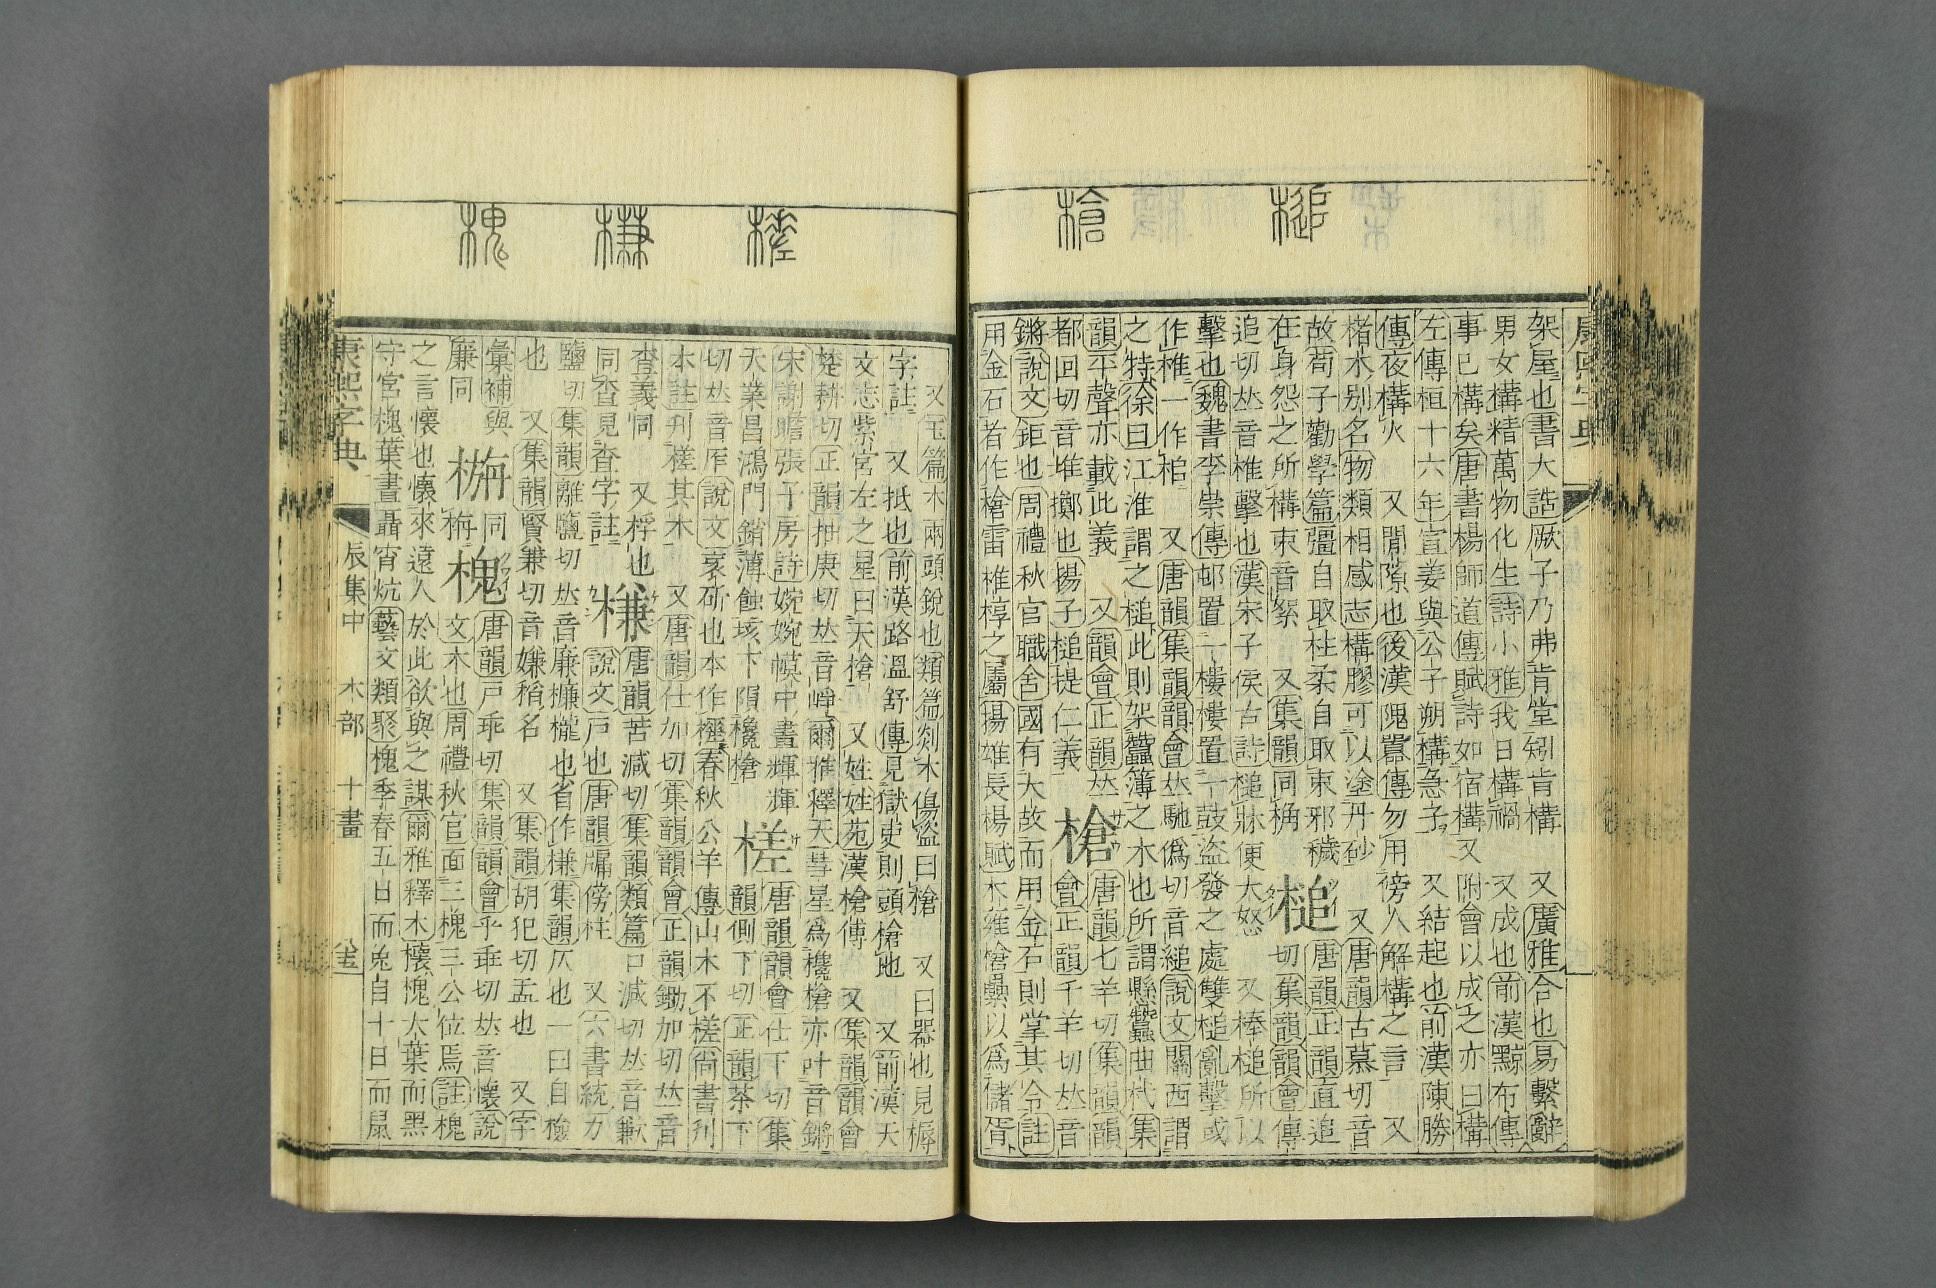 槌
槍
架屋也書大誥厥子乃弗肯堂矧肯構 又廣雅合也易繫辭
男女構精萬物化生詩小雅我日構禍 又成也前漢黥布傳
事已構矣唐書楊師道傳賦詩如宿構又附會以成之亦曰構
左傳桓十六年宣姜與公子朔構急子 又結起也前漢陳勝
傳夜構火 又閒隙也後漢隗囂傳勿用傍人解構之言 又
楮木別名物類相感志構膠可以塗丹砂 又唐韻古慕切音
故荀子勸學篇彊自取柱柔自取束邪穢
在身怨之所構束音絮 又集韻同桷 槌 唐韻正韻直追切集韻韻會傳
追切𠀤音椎擊也漢宋子侯古詩槌牀便大怒 又棒槌所以
擊也魏書李崇傳邨置一樓樓置一鼓盜發之處雙槌亂擊或
作椎一作棓 又唐韻集韻韻會𠀤馳僞切音縋說文關西謂
之特徐曰江淮謂之槌此則架蠶簿之木也所謂縣蠶曲柣集
韻平聲亦載此義 又韻會正韻𠀤
都回切音堆擲也揚子槌提仁義 槍 唐韻七羊切集韻韻會正韻千羊切𠀤音
鏘說文鉅也周禮秋官職金國有大故而用金石則掌其令註
用金石者作槍雷椎椁之屬揚雄長楊賦木雍槍纍以爲儲胥
榁
槏
槐
又玉篇木兩頭銳也類篇剡木傷盜曰槍 又曰器也見槈
字註 又抵也前漢路溫舒傳見獄吏則頭槍地 又前漢天
文志紫宮左之星曰天槍 又姓姓苑漢槍傳 又集韻韻會
楚耕切正韻抽庚切𠀤音崢爾雅釋天彗星爲欃槍亦叶音鏘
宋謝瞻張子房詩婉婉幙中畫輝輝
天業昌鴻門銷薄蝕垓下隕欃槍 槎 唐韻韻會仕下切集韻側下切正韻茶下
切𠀤音厏說文衺斫也本作㮐春秋公羊傳山木不槎尙書刋
木註刋槎其木 又唐韻仕加切集韻韻會正韻鋤加切𠀤音
査義同 又桴也
同査見査字註 槏 唐韻苦減切集韻類篇口減切𠀤音歉
說文戸也唐韻牖傍柱 又六書統力
鹽切集韻離鹽切𠀤音廉槏櫳也省作槏集韻仄也一曰自槏
也 又集韻賢兼切音嫌稻名 又集韻胡犯切盂也 又字
彙補與
廉同 栴 同栴 槐 唐韻戸乖切集韻韻會乎乖切𠀤音懷說
文木也周禮秋官面三槐三公位焉註槐
之言懷也懷來遠人於此欲與之謀爾雅釋木櫰槐大葉而黑
守宮槐葉晝聶宵炕藝文類聚槐季春五日而兎自十日而鼠
康熙字典 辰集中 木部 十畫